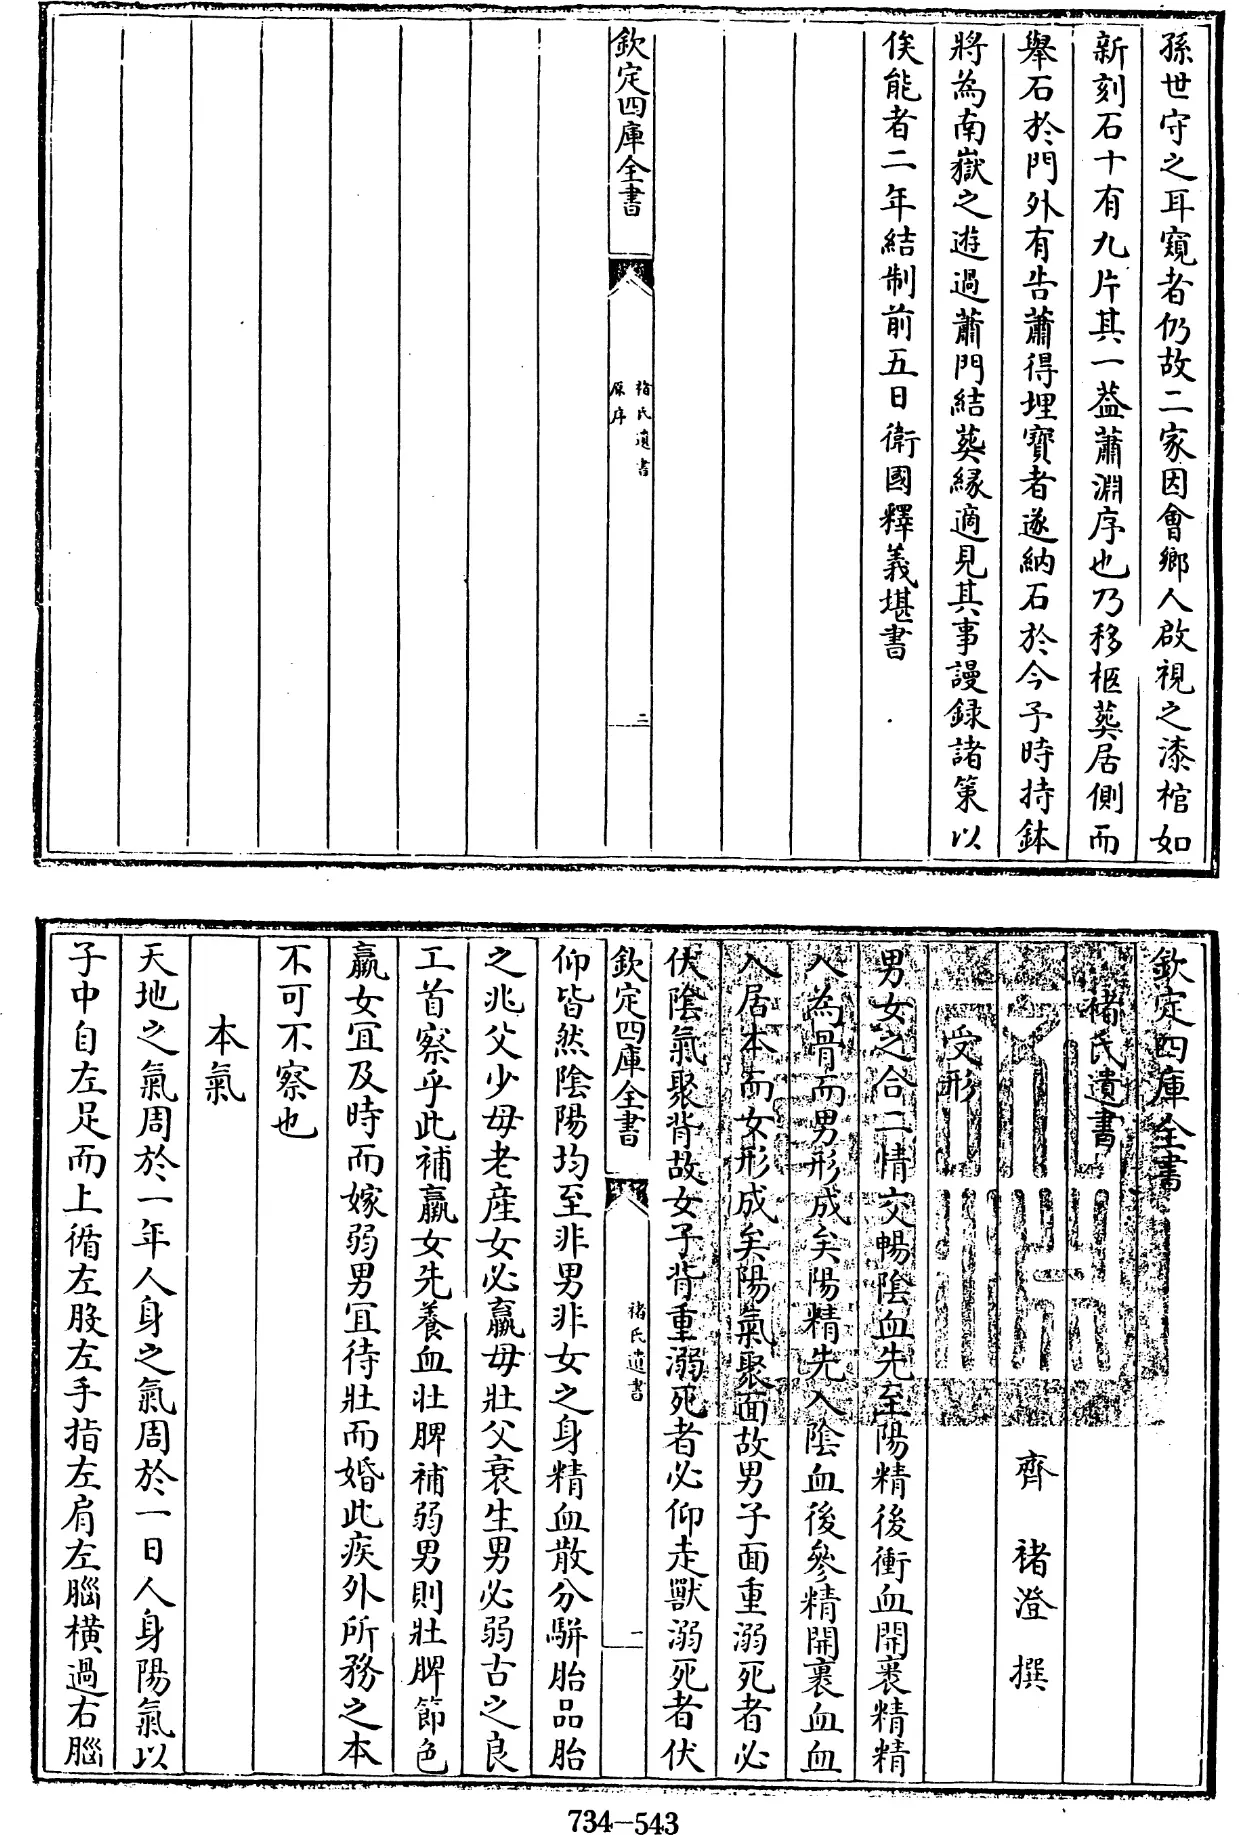 孫世守之耳窺者仍故二家因會鄉人啟視之漆棺如
新刻石十有九片其一葢蕭淵序也乃移柩葬居側而
舉石於門外有告蕭得埋寶者遂納石於今予時持鉢
將為南嶽之遊過蕭門結葬緣適見其事謾録諸策以
俟能者二年結制前五日衛國釋義堪書
欽定四庫全書
褚氏遺書
原序
三
欽定四庫全書
褚氏遺書
齊 褚澄 撰
受形
男女之合二情交暢陰血先至陽精後衝血開裹精精
入為骨而男形成矣陽精先入陰血後參精開裹血血
入居本而女形成矣陽氣聚面故男子面重溺死者必
伏陰氣聚背故女子背重溺死者必仰走獸溺死者伏
欽定四庫全書
褚氏遺書
一
仰皆然陰陽均至非男非女之身精血散分駢胎品胎
之兆父少母老產女必羸母壯父衰生男必弱古之良
工首察乎此補羸女先養血壯脾補弱男則壯脾節色
羸女宜及時而嫁弱男宜待壯而婚此疾外所務之本
不可不察也
本氣
天地之氣周於一年人身之氣周於一日人身陽氣以
子中自左足而上循左股左手指左肩左腦橫過右腦
734-543